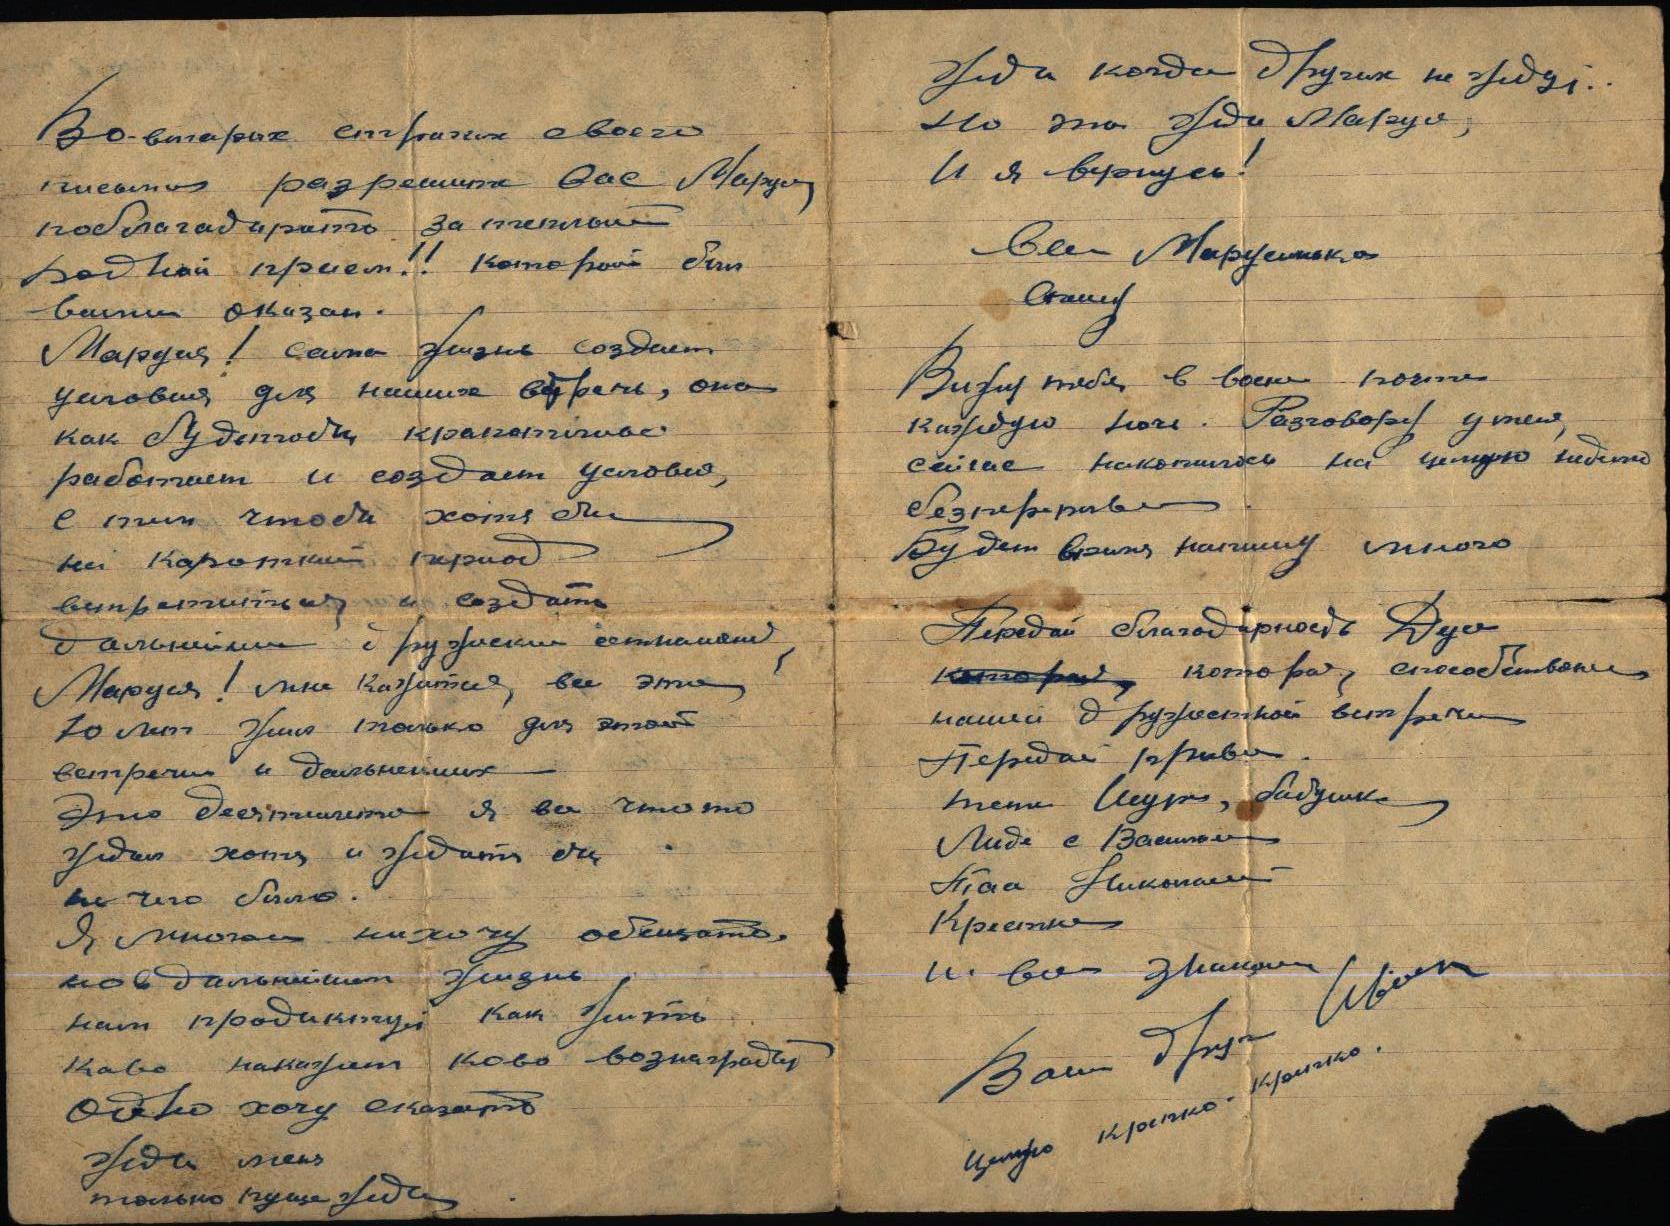 Во-вторых строчих своего
письма разрешите вас Маруся,
поблагадарить за теплый
родной прием!! который был
вами оказан.
Маруся! сама жизнь создает
условия для наших встречь, она
как будтобы кропотливо
работает и создает условия,
с тем чтобы хотя бы
на кароткий период
встретиться и создать
дальнейшие дружеские отношения,
Маруся! мне кажется, все эти
10 лет жил только для этой
встречи и дальнейших
Это десятилетие я все что то
ждал хотя и ждать бы
не чего было.
Я, многое нихочу обещать.
но в дальнейшем жизнь
нам продиктует как жить
каво накажет ково вознаградит
Одно хочу сказать
Жди меня
только пуще жди
Жди когда других не ждут..
Но ты жди Маруся,
И я вернусь!
Все Марусинька
Вижу тебя, в военн почти
каждую ночь. Разговору у меня,
сейчас накопилось на целую неделю
безперерыва
Будет время напишу много
Передай благодарность Дусе
которая, которая, способствовала
нашей дружестной встречи
Передай привет.
тети Шуре, бабушке,
Лиде с Василем
Николаем
Крестне
и всем знакомым
Ваш друг
Целую крепко-крепко.